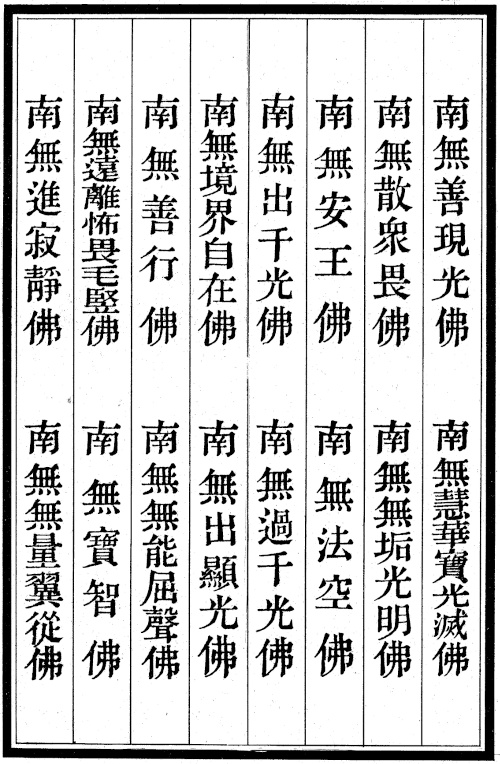 南無善現光佛
南無慧華寶光滅佛
南無散衆畏佛
南無無垢光明佛
南無安王佛
南無法空佛
南無出千光佛
南無過千光佛
南無境界自在佛
南無出顯光佛
南無善行佛
南無無能屈聲佛
南無遠離怖畏毛竪佛
南無寶智佛
南無進寂靜佛
南無無量翼從佛